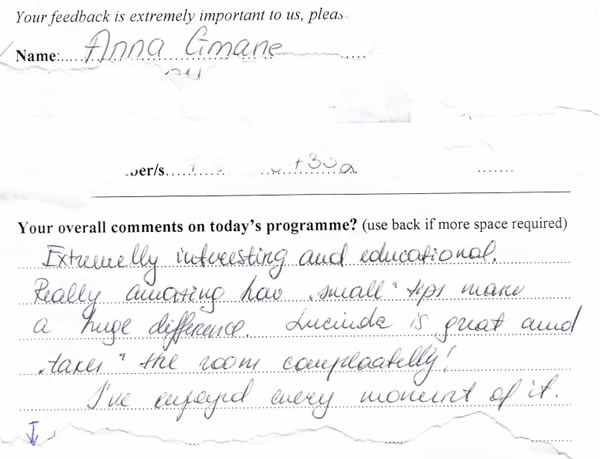 Your feedback is extremely important to us, pleas
Name: Anna Cimane
ber/s
Your overall comments on today's programme? (use back if more space required)
Extremelly interesting and educational.
Really amazing how „small" tips make
a huge difference. Lucinda is great and
„takes" the room compleatelly!
I've enjoyed every moment of it.